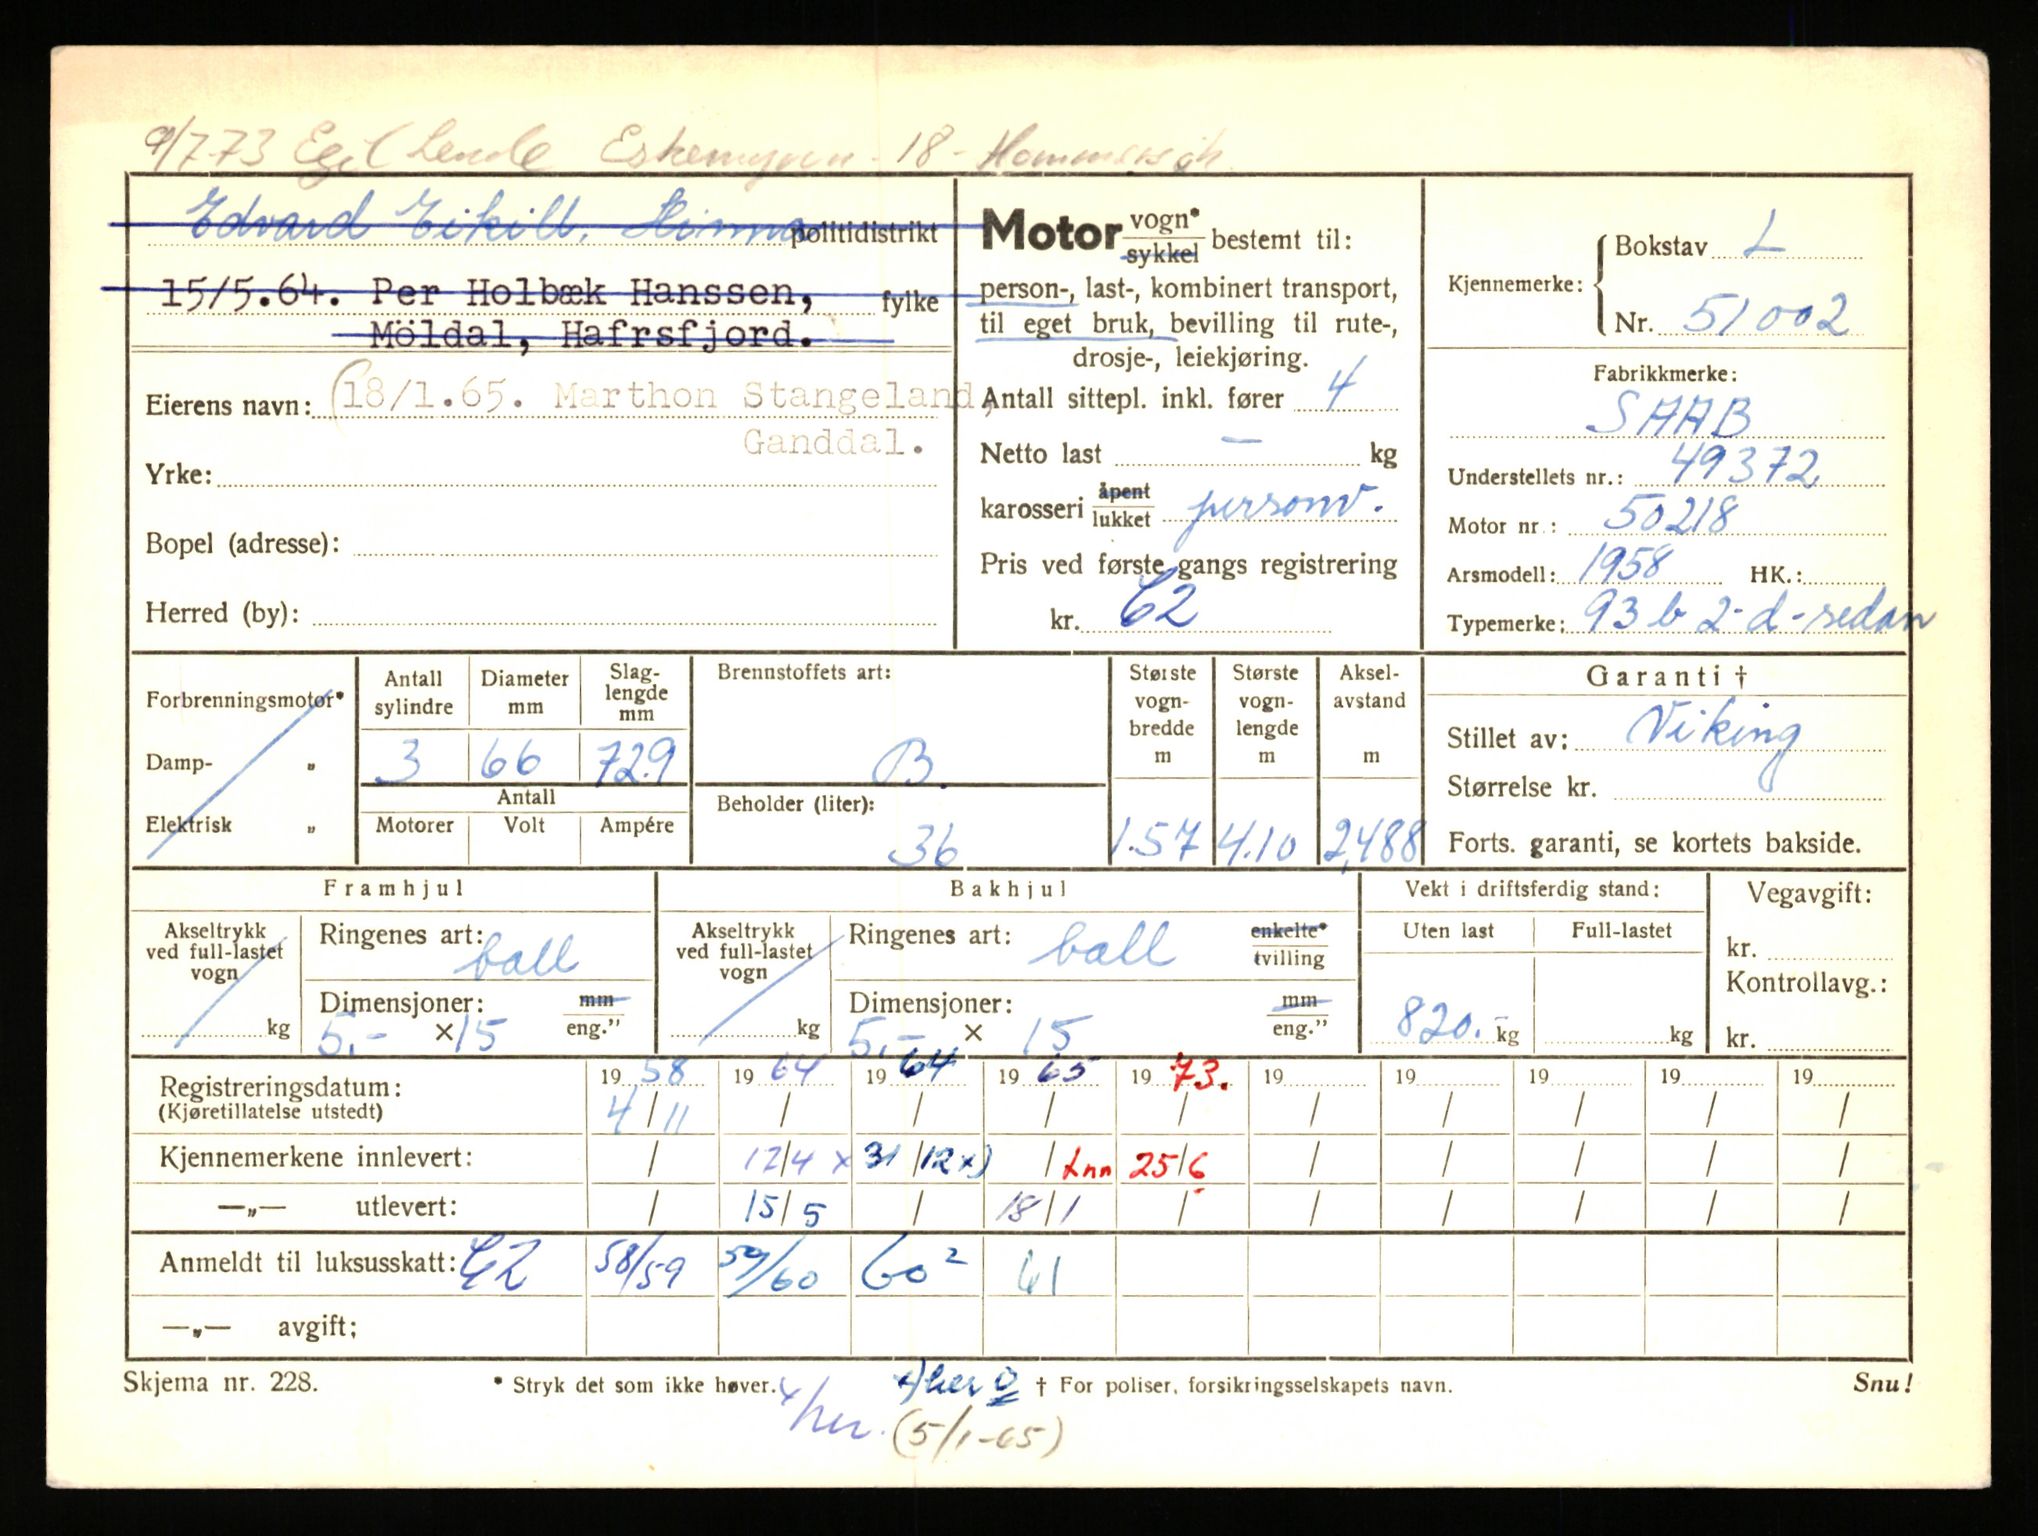 9/7-73 Egil Lende Eskemyren - 18 - Hommersåk
Edvard Eikill, Hinna politidistrikt
15/5.64. Per Holbæk Hanssen, fylke
Möldal, Hafrsfjord.
Eierens navn: (18/1.65. Marthon Stangeland,
Ganddal.
Yrke:
Bopel (adresse):
Herred (by):
Motor vogn* bestemt til:
sykkel
person-, last-, kombinert transport,
til eget bruk, bevilling til rute-,
drosje-, leiekjøring.
Antall sittepl. inkl. fører 4
Netto last — kg
karosseri åpent
lukket personv.
Pris ved første gangs registrering
kr.
Kjennemerke: Bokstav L
Nr. 51002
Fabrikkmerke:
SAAB
Understellets nr.: 49372
Motor nr.: 50218
Arsmodell: 1958 HK.:
Typemerke: 93 b 2-d-sedan
Forbrenningsmotor*
Damp- „
Elektrisk „
Antall sylindre Diameter mm Slag-lengde mm
3 66 72.9
Antall
Motorer Volt Ampére
Brennstoffets art:
B.
Beholder (liter):
36
Største vogn-bredde m
1.57
Største vogn-lengde m
4.10
Aksel-avstand m
2,488
Garanti †
Stillet av: Viking
Størrelse kr.
Forts. garanti, se kortets bakside.
Framhjul
Akseltrykk ved full-lastet vogn
kg
Ringenes art: ball
Dimensjoner: mm
5.- × 15 eng."
Bakhjul
Akseltrykk ved full-lastet vogn
kg
Ringenes art: ball enkelte*
tvilling
Dimensjoner: mm
5.- × 15 eng."
Vekt i driftsferdig stand:
Uten last Full-lastet
820.- kg kg
Vegavgift:
kr.
Kontrollavg.:
kr.
Registreringsdatum: 19 58 19 64 19 64 19 65 19 73. 19 19 19 19 19
(Kjøretillatelse utstedt) 4/11 / / / / / / / / /
Kjennemerkene innlevert: / 12/4 x 31/12 x) / Lnn 25/6 / / / / /
—„— utlevert: / 15/5 / 18/1 / / / / / /
Anmeldt til luksusskatt: 58/59 59/60 60² 61
—„— avgift:
Skjema nr. 228. * Stryk det som ikke høver. x) her † For poliser, forsikringsselskapets navn. Snu!
x/her. (5/1-65)